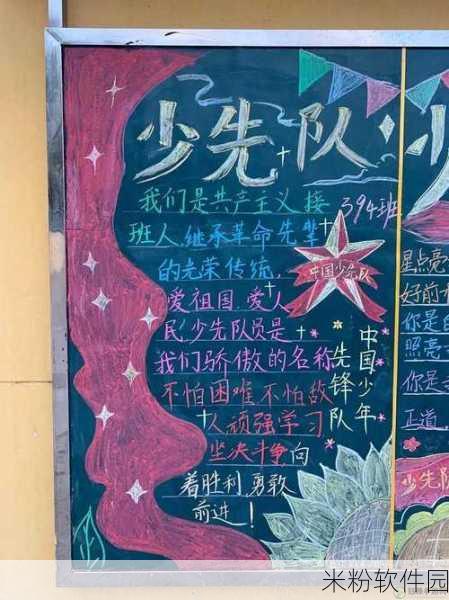 少先队
我们是共产主义接
394班
班人,继承革命先辈
的光荣传统,
中国少先队
爱祖国,爱人
民,少先队员是
我们骄傲的名称
不怕困难不怕敌
人顽强学习
坚决斗争向
着胜利,勇敢
前进!
中国少年
先锋队
星点亮
好前
你是
照亮
你是
正道,
少先队
米粉软件园